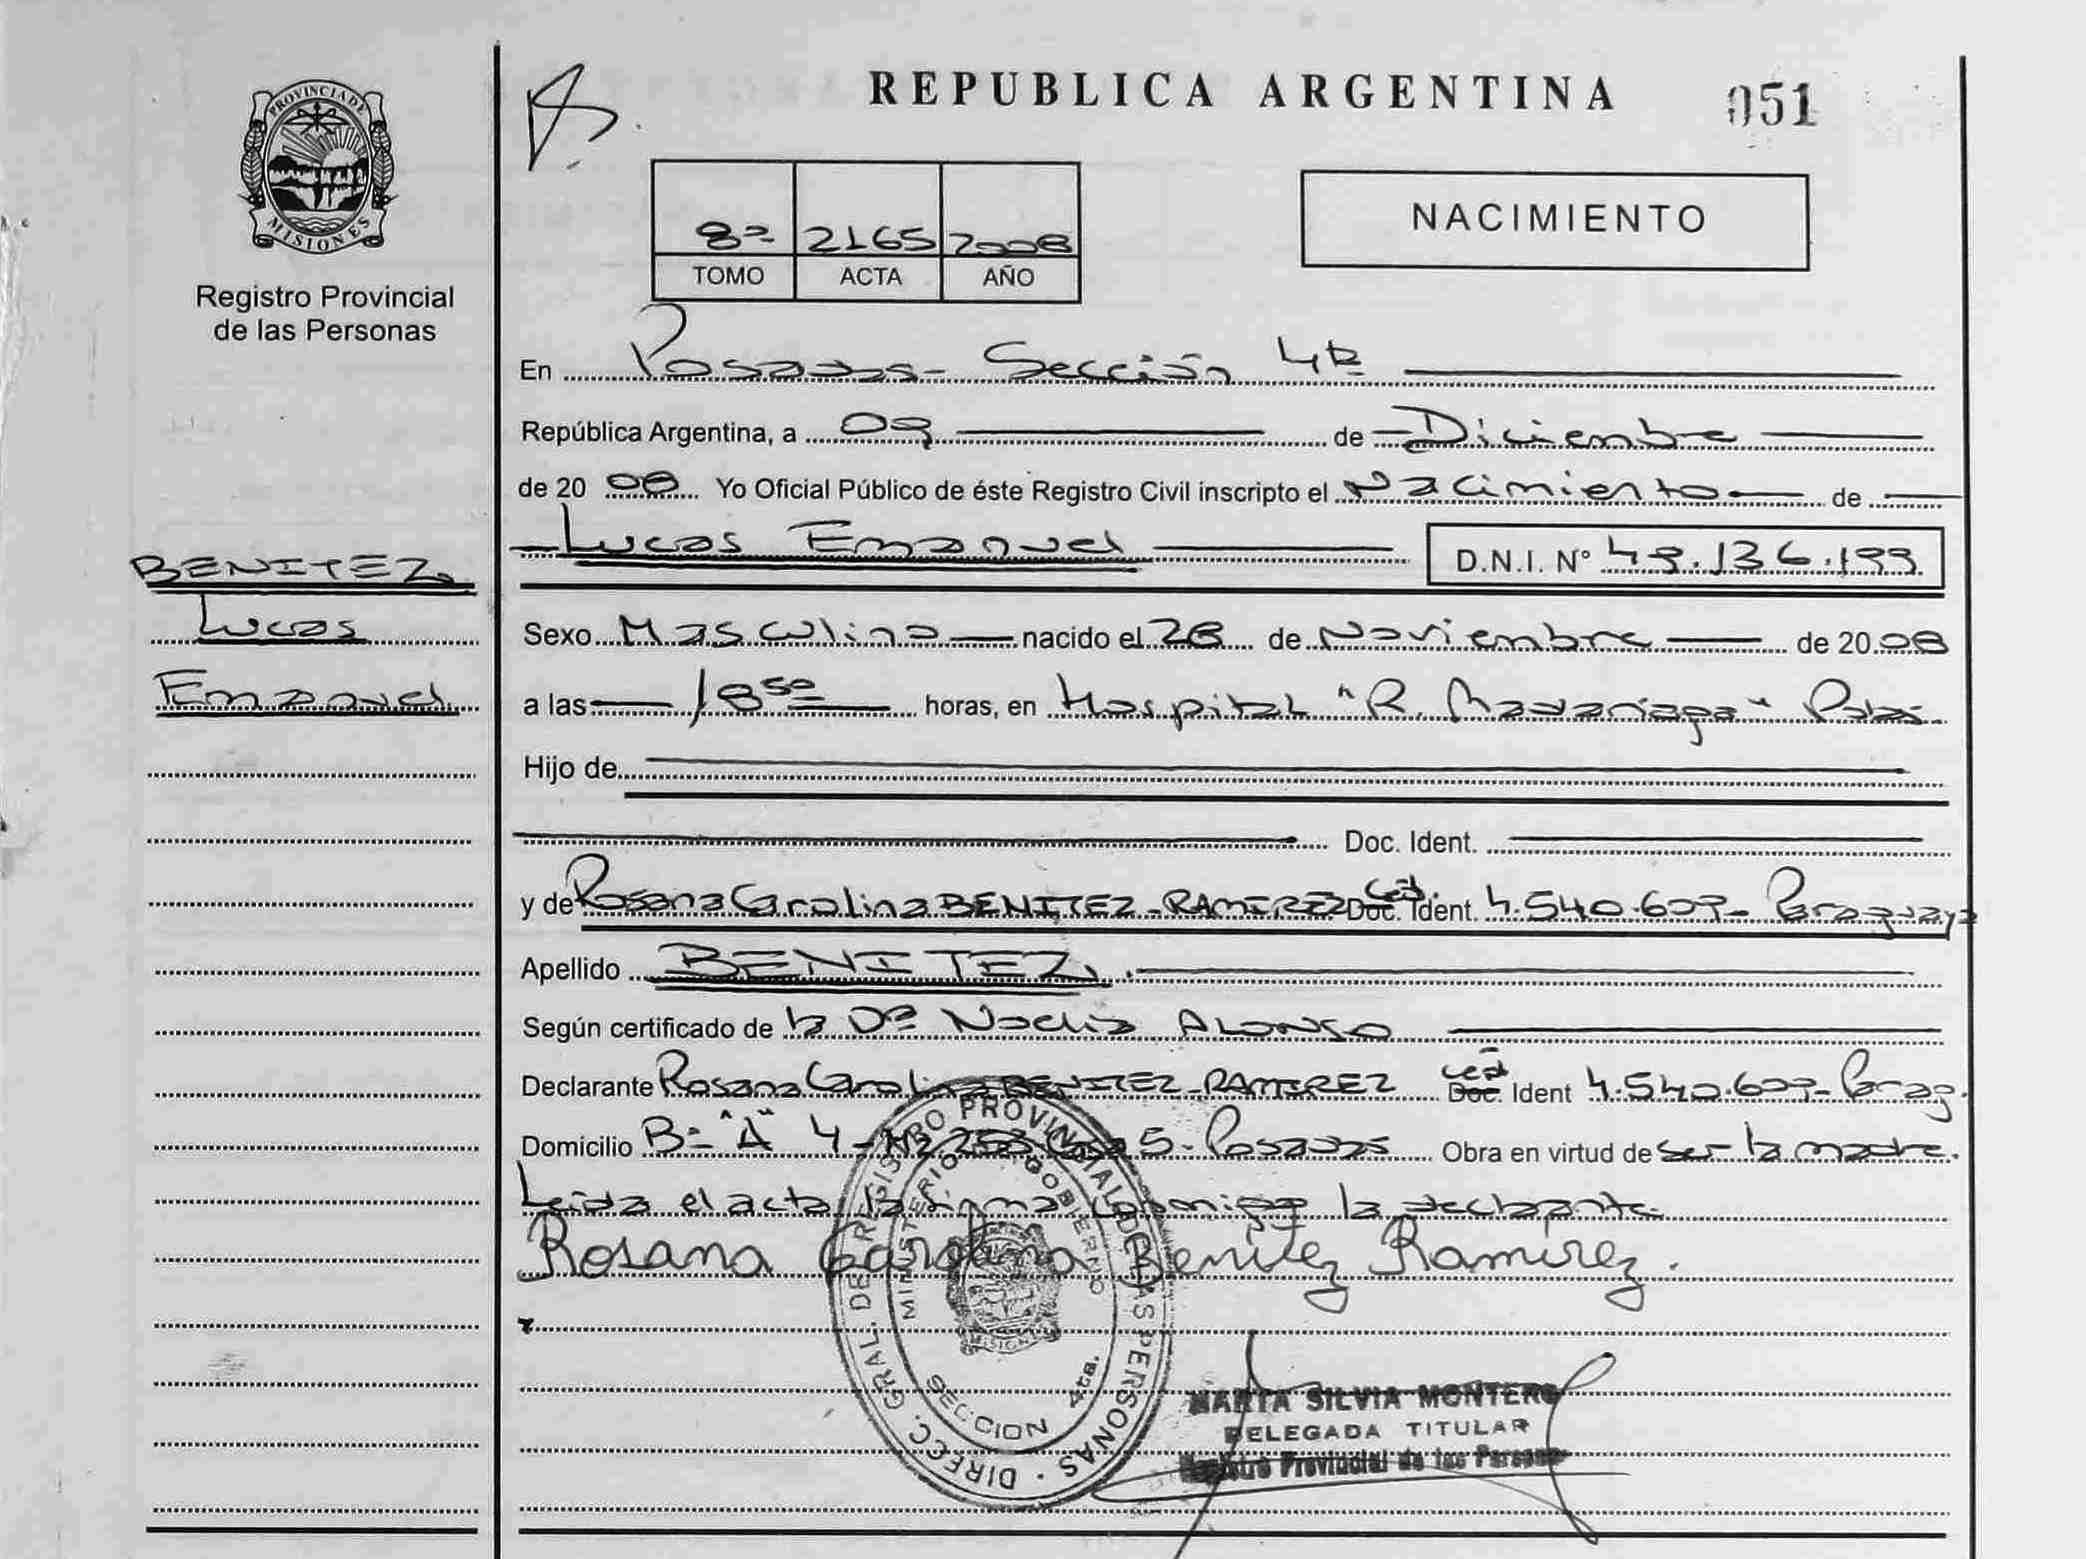 PROVINCIA DE
MISIONES
Registro Provincial
de las Personas
BENITEZ
Lucas
Emanuel
REPUBLICA ARGENTINA
051
8º 2165 2008
TOMO ACTA AÑO
NACIMIENTO
En Posadas - Sección 4ta
República Argentina, a 09 de Diciembre
de 2008 Yo Oficial Público de éste Registro Civil inscripto el Nacimiento de
Lucas Emanuel D.N.I. Nº 49.136.199
Sexo Masculino nacido el 28 de Noviembre de 2008
a las 18:50 horas, en Hospital "R. Madariaga" Pdas
Hijo de
Doc. Ident.
y de Rosana Carolina BENITEZ-RAMIREZ Ced. Doc. Ident. 4.540.607 - Paraguaya
Apellido BENITEZ
Según certificado de la Dra Noelia ALONSO
Declarante Rosana Carolina BENITEZ-RAMIREZ Ced Doc. Ident 4.540.607 - Parag.
Domicilio Bº "A" 4 - Mz 253 Casa 5 - Posadas Obra en virtud de ser la madre.
Leida el acta la firma conmigo la declarante.
Rosana Carolina Benitez Ramirez.
DIREC. GRAL. DE REGISTRO PROVINCIAL DE LAS PERSONAS
MINISTERIO GOBIERNO
SECCION 4ta.
MARTA SILVIA MONTERO
DELEGADA TITULAR
Registro Provincial de las Personas